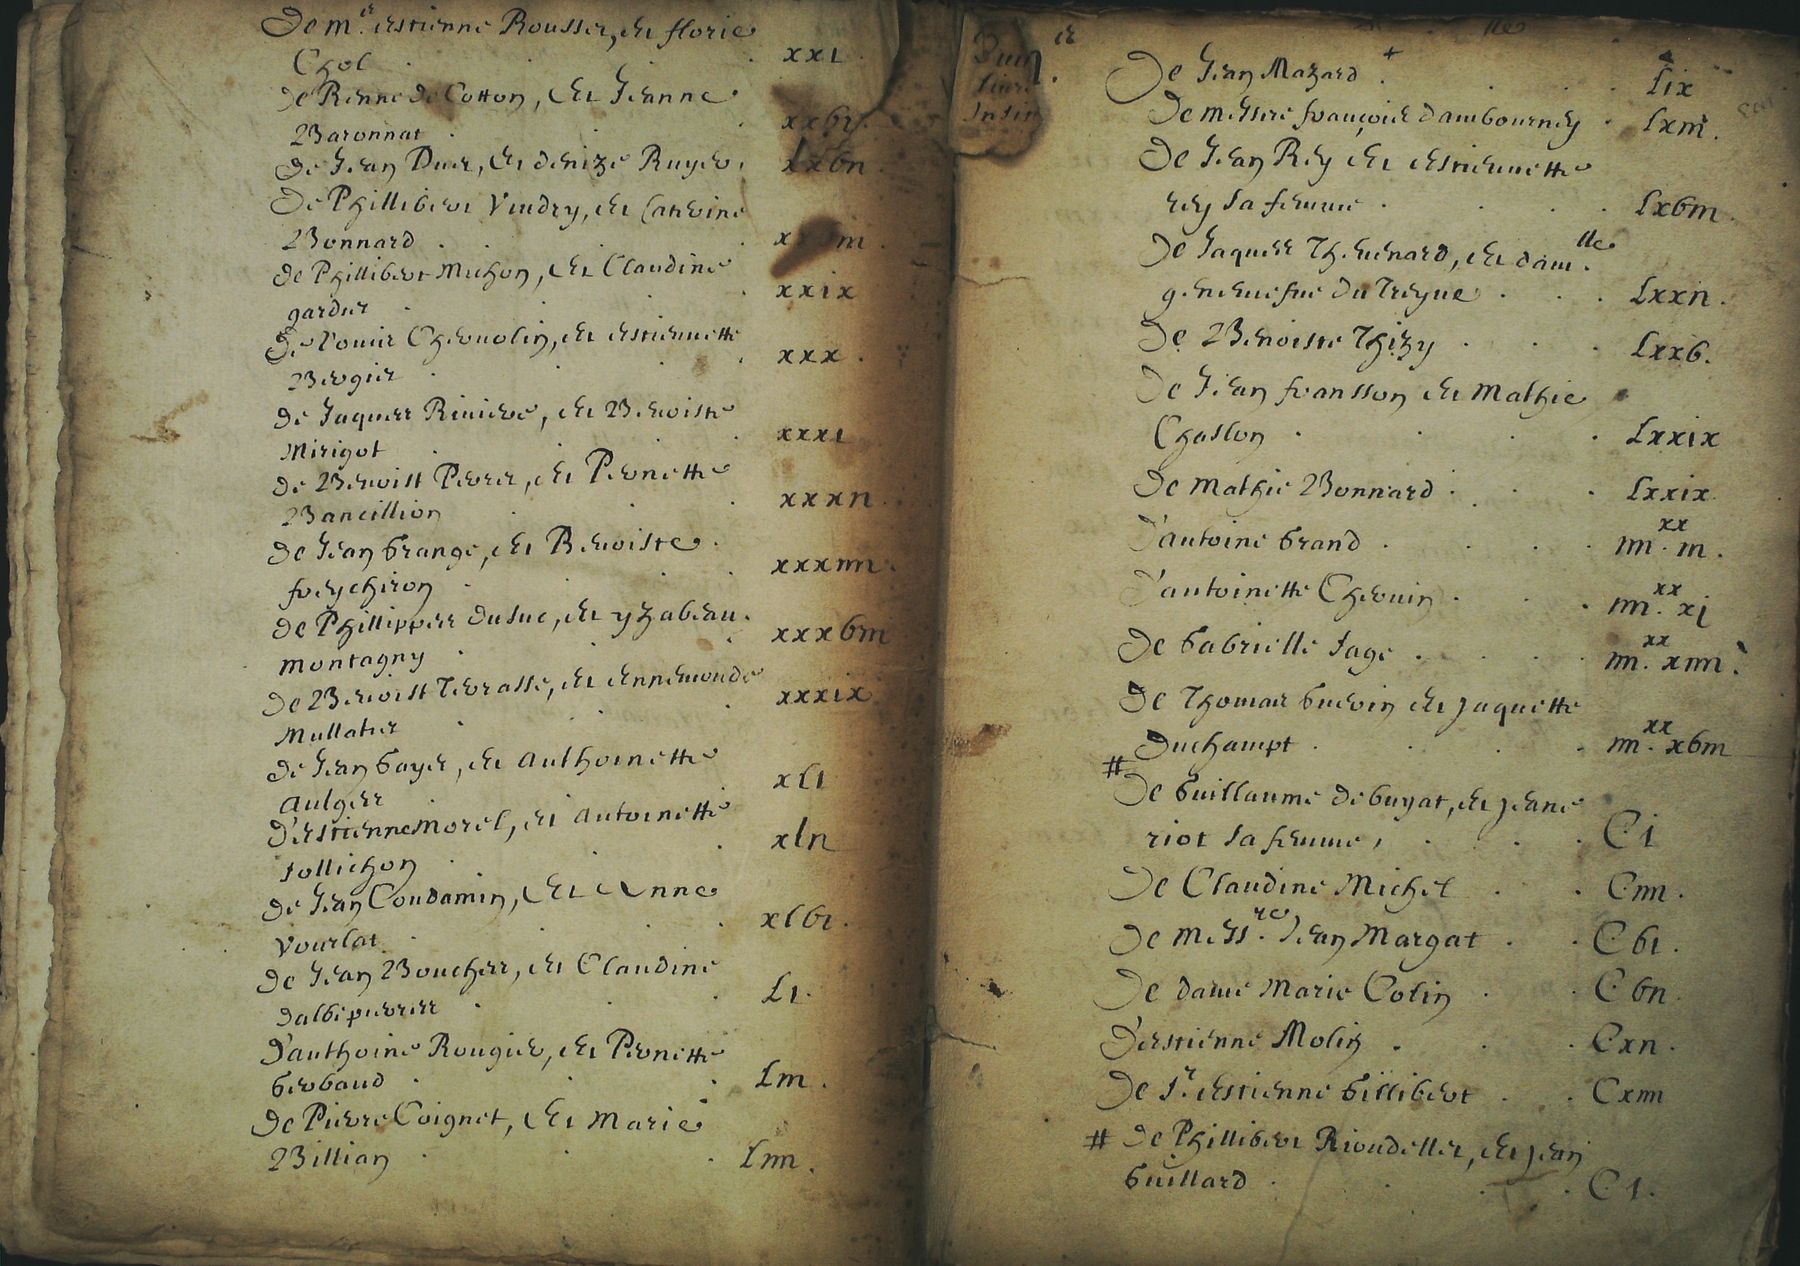 De m.er Estienne Rousset, et florie
Chol . . . xxi
de Renne de Cotton, et Jeanne
Baronnat . . . xxvi.
de Jean Duet, et denize Ruyer,
De Phillibert Vindry, et Caterine
Bonnard . . .
de Phillibert Michon, et Claudine
gardier . . . xxix
de Chevrolin, et estiennette
Bergier . . . xxx.
de Jaques Riviere, et Benoiste
Mirigot . . . xxxi
de Benoist Perret, et Pernette
Bancillion . . . xxxii
de Jean Grange, et Benoiste .
freychiron . . . xxxiiii.
de Phillippes duluc, et yzabeau.
montagny . . . xxxviii
de Benoist Terrasse, et Ennemonde
Mullatier . . . xxxix
de Jean Gayet, et Anthoinette
Aulgier . . . xli
d'Estienne Morel, et Antoinette
Jollichon . . . xlii
de Jean Condamin, et Anne
Vourlat . . . xlvi.
de Jean Boucher, et Claudine
. . . Li.
D'anthoine Rougier, et Pernette
Gerbaud . . . Liii.
de Pierre Coignet, et Marie
Billian . . . Liiii.
De Jean Mazard + . . . Lix
De messire françois dambourney . Lxiii.
De Jean Rey et estiennette
rey sa femme . . . Lxviii.
De Jaques Thevenard, et dam.lle
genevefue du Treyue . . . Lxxii.
De Benoiste Thizy . . . Lxxv.
De Jean fransson et Mathie
Chaslon . . . Lxxix
De Mathie Bonnard . . . Lxxix
D'antoine Grand . . . iiii.xx iii.
D'antoinette Chervin . . . iiii.xx xj
De Gabrielle sage . . . iiii.xx xiiii.
De Thomas Guerin et Jaquette
Duchampt . . . iiii.xx xviii
# De Guillaume deguyat, et Jeane
riot sa femme, . . . Ci
De Claudine Michel . . . Ciiii.
De Mess.re Jean Margat . . Cvi.
De dame Marie Colin . . Cvii.
D'estienne Molin . . . Cxii.
De S.r Estienne Gillibert . . Cxiiii
# De Phillibert Rioudeller, et Jean
Guillard . . . Ci.